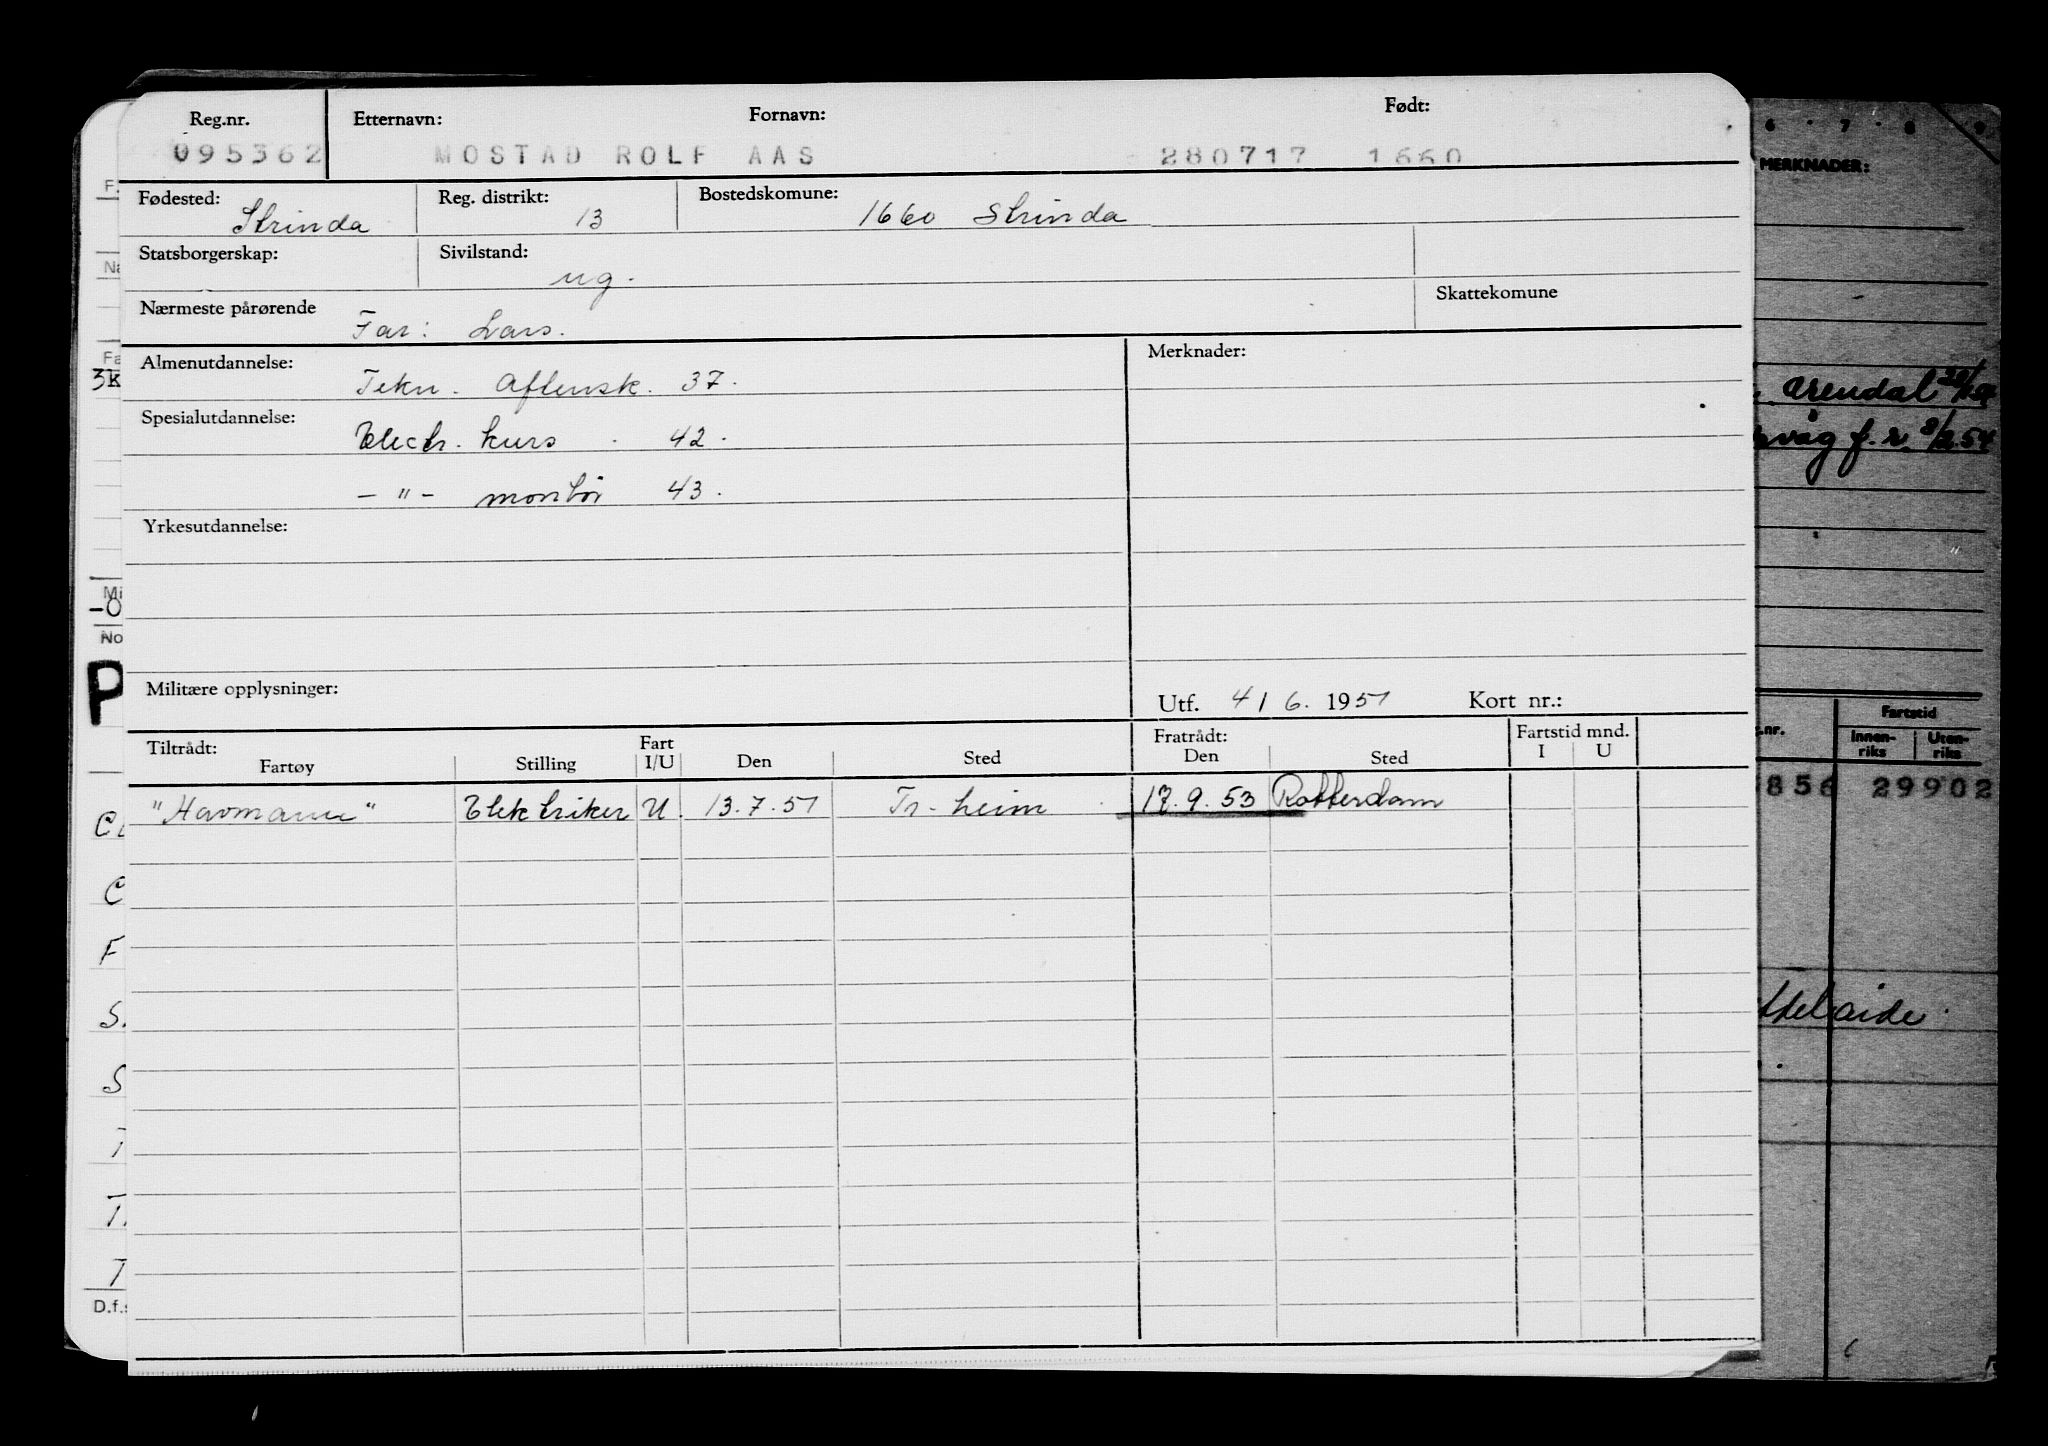 Reg.nr. Etternavn: Fornavn: Født:
095362 MOSTAD ROLF AAS 280717 1660
Fødested: Strinda Reg. distrikt: 13 Bostedskomune: 1660 Strinda
Statsborgerskap: Sivilstand: ug.
Nærmeste pårørende Far: Lars. Skattekomune
Almenutdannelse: Tekn. Aftensk. 37. Merknader:
Spesialutdannelse: Electr. kurs 42.
– " – montör 43.
Yrkesutdannelse:
Militære opplysninger: Utf. 4/6. 1951 Kort nr.:
Tiltrådt: Fratrådt: Fartstid mnd.
Fartøy Stilling Fart I/U Den Sted Den Sted I U
Elektriker U. 13.7.51 Tr-heim 9.53 Rotterdam
6 . 7 . 8 . 9
MERKNADER:
Arendal
våg f.r. 8/2 54
Fartstid
.nr. Innen-riks Uten-riks
856 29902
D.f.